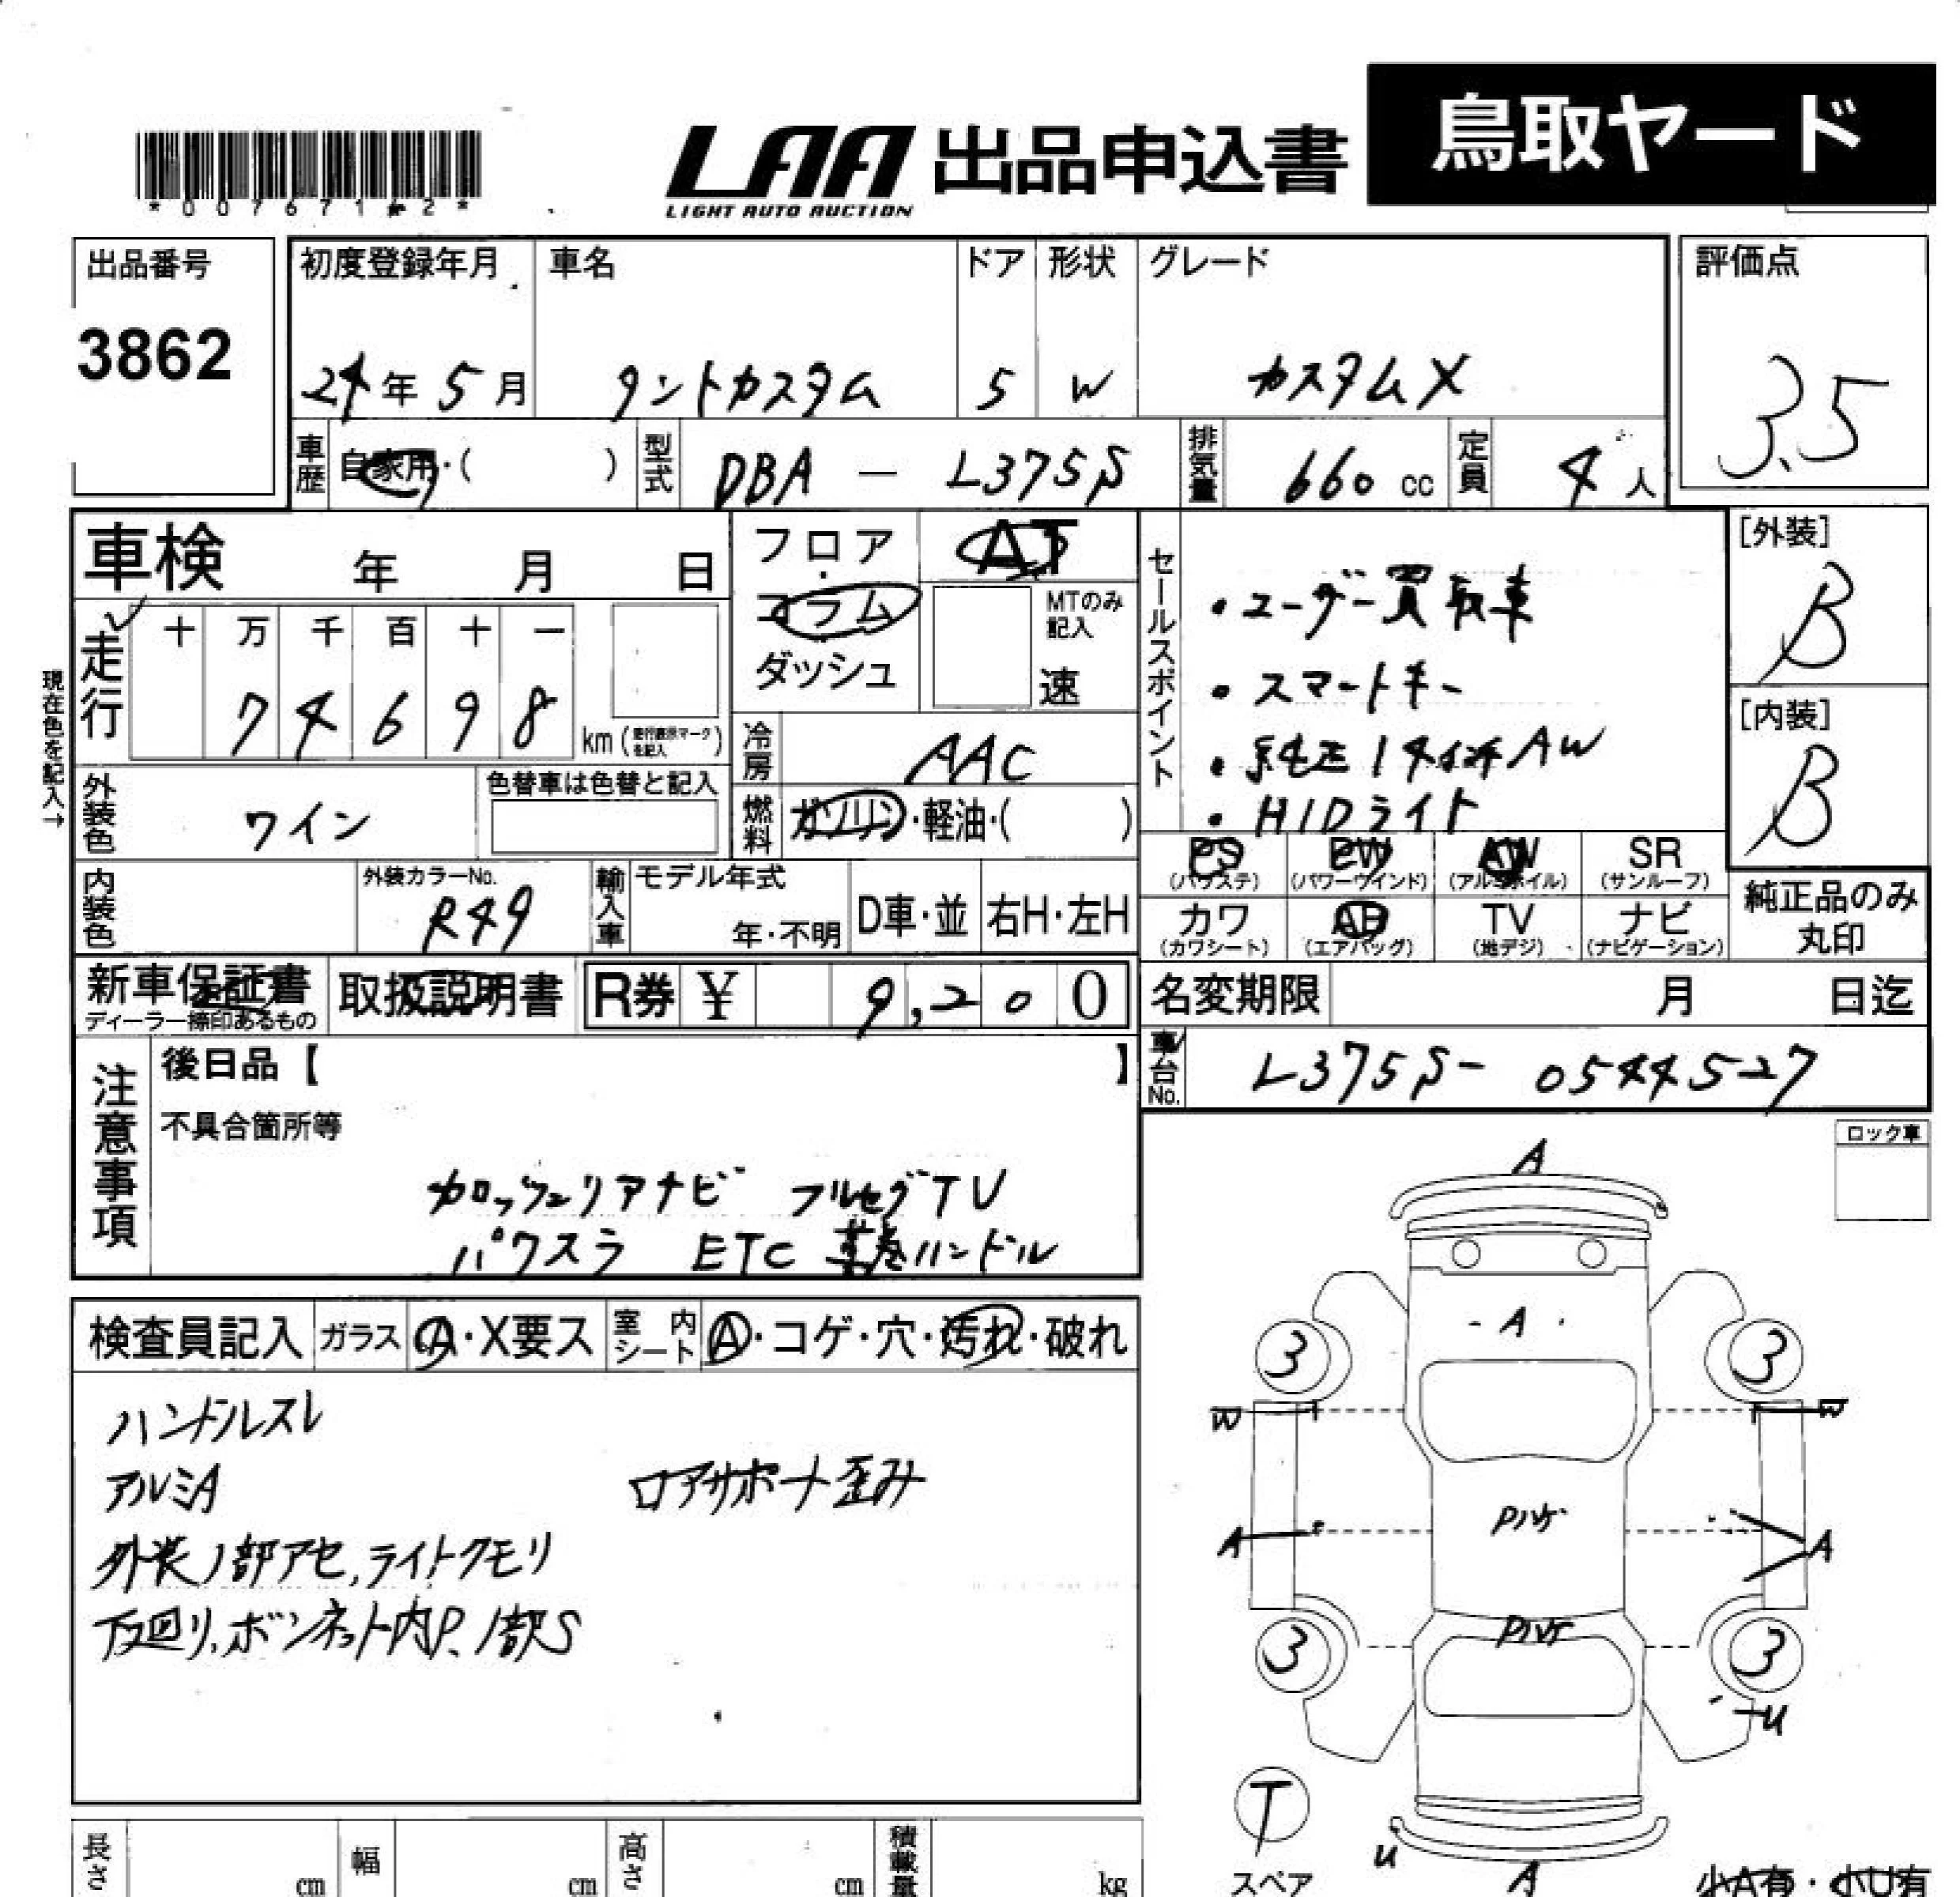 鳥取ヤード
LAA 出品申込書
LIGHT AUTO AUCTION
出品番号
3862
初度登録年月
24年 5月
車名
タントカスタム
ドア
5
形状
W
グレード
カスタムX
評価点
3.5
車歴
自家用・( )
型式
DBA - L375S
排気量
660 cc
定員
4人
車検 年 月 日
フロア・コラム
ダッシュ
AT
MTのみ記入
速
セールスポイント
・ユーザー買取車
・スマートキー
・純正14インチAW
・HIDライト
[外装]
B
[内装]
B
現在色を記入→
走行
十 万 千 百 十 一
7 4 6 9 8
km(走行表示マークを記入)
冷房
AAC
燃料
ガソリン・軽油・( )
外装色
ワイン
色替車は色替と記入
内装色
外装カラーNo.
R49
輸入車
モデル年式
年・不明
D車・並
右H・左H
PS
(パワステ)
PW
(パワーウインド)
AW
(アルミホイル)
SR
(サンルーフ)
カワ
(カワシート)
AB
(エアバッグ)
TV
(地デジ)
ナビ
(ナビゲーション)
純正品のみ
丸印
新車保証書
ディーラー捺印あるもの
取扱説明書
R券 ¥ 9,200
名変期限 月 日迄
車台No.
L375S- 0544527
注意事項
後日品【 】
不具合箇所等
カロッツェリアナビ フルセグTV
パワスラ ETC 革巻ハンドル
ロック車
検査員記入
ガラス
A・X要ス
室内
シート
A・コゲ・穴・汚れ・破れ
ハンドルスレ
アルミA
ロアサポート歪み
外装1部アセ,ライトクモリ
下廻り,ボンネット内P.1部S
A
A
3
3
W
W
Pハゲ
A
A
Pハゲ
3
3
U
T
スペア
U
A
小A有・小U有
長さ
cm
幅
cm
高さ
cm
積載量
kg